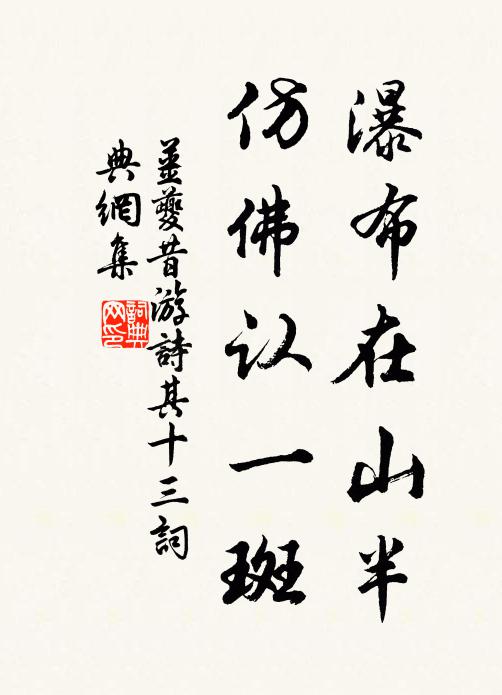 瀑布在山半
仿佛认一斑
姜夔昔游詩其十三詞
典網集
詞典网印